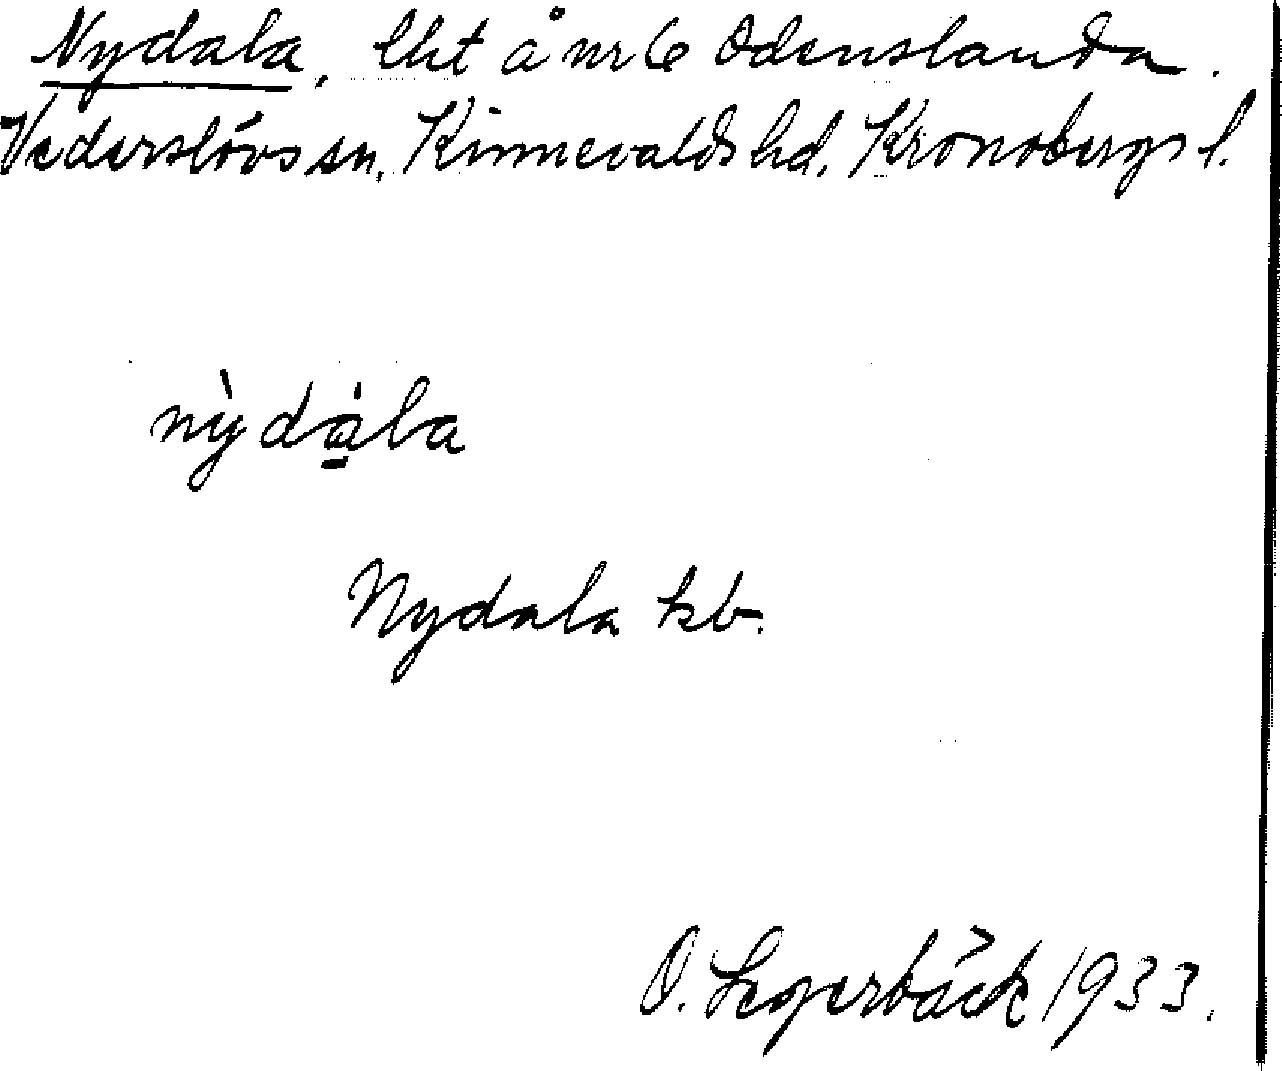 Nydala, lht å nr 6 Odenslanda.
Vederslövs sn, Kinnevalds hd. Kronobergs l.
nỳdàla
Nydala kb.
O. Segerbäck 1933.